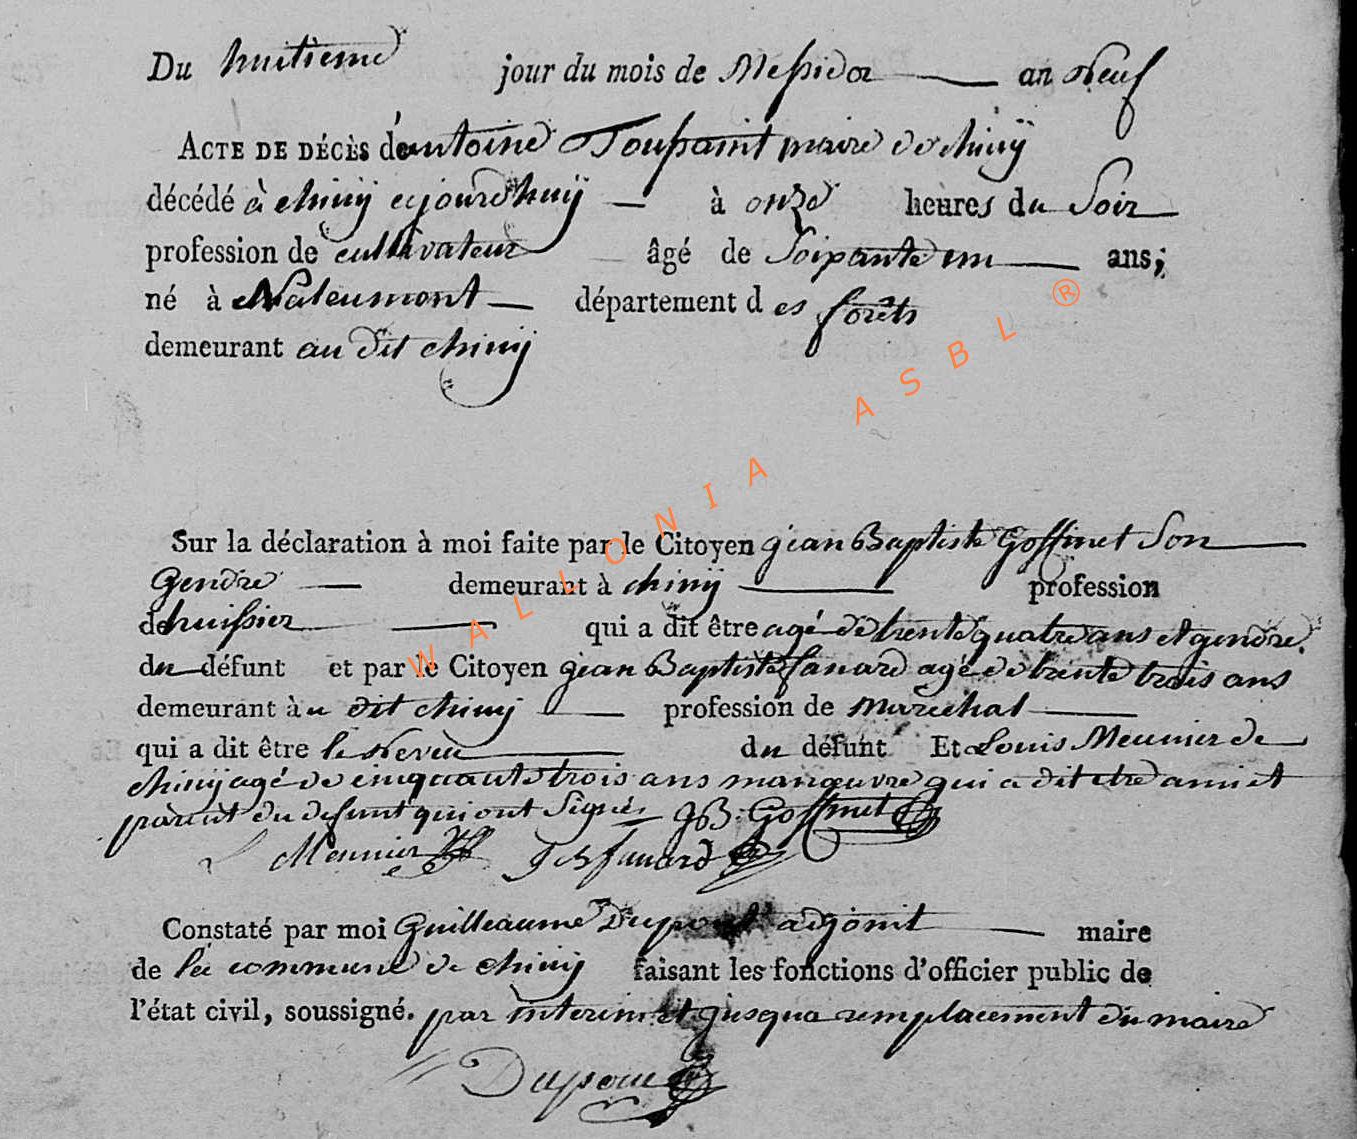 Du huitieme jour du mois de Messidor an Neuf
ACTE DE DÉCÈS de antoine Toussaint maire de chiny
décédé à chiny ajourdhuy à onze heures du Soir
profession de cultivateur âgé de Soixante un ans;
né à Valeumont département des forêts
demeurant au dit chiny
Sur la déclaration à moi faite par le Citoyen gean Baptiste Goffinet Son
Gendre demeurant à chiny profession
de huissier qui a dit être agé de trente quatre ans et gendre
du défunt et par le Citoyen gean Baptiste fanard agé de trente trois ans
demeurant àu dit chiny profession de marechal
qui a dit être le neveu du défunt Et Louis Meunier de
chiny agé de cinquante trois ans manœuvre qui a dit etre ami et
parent du defunt qui ont Signés JB. Goffinet
L Meunier J B fanard
Constaté par moi Guilleaume Dupont adgoint maire
de la commune de chiny faisant les fonctions d'officier public de
l'état civil, soussigné. par interim et jusqua remplacement du maire
Dupont
WALLONIA ASBL ®